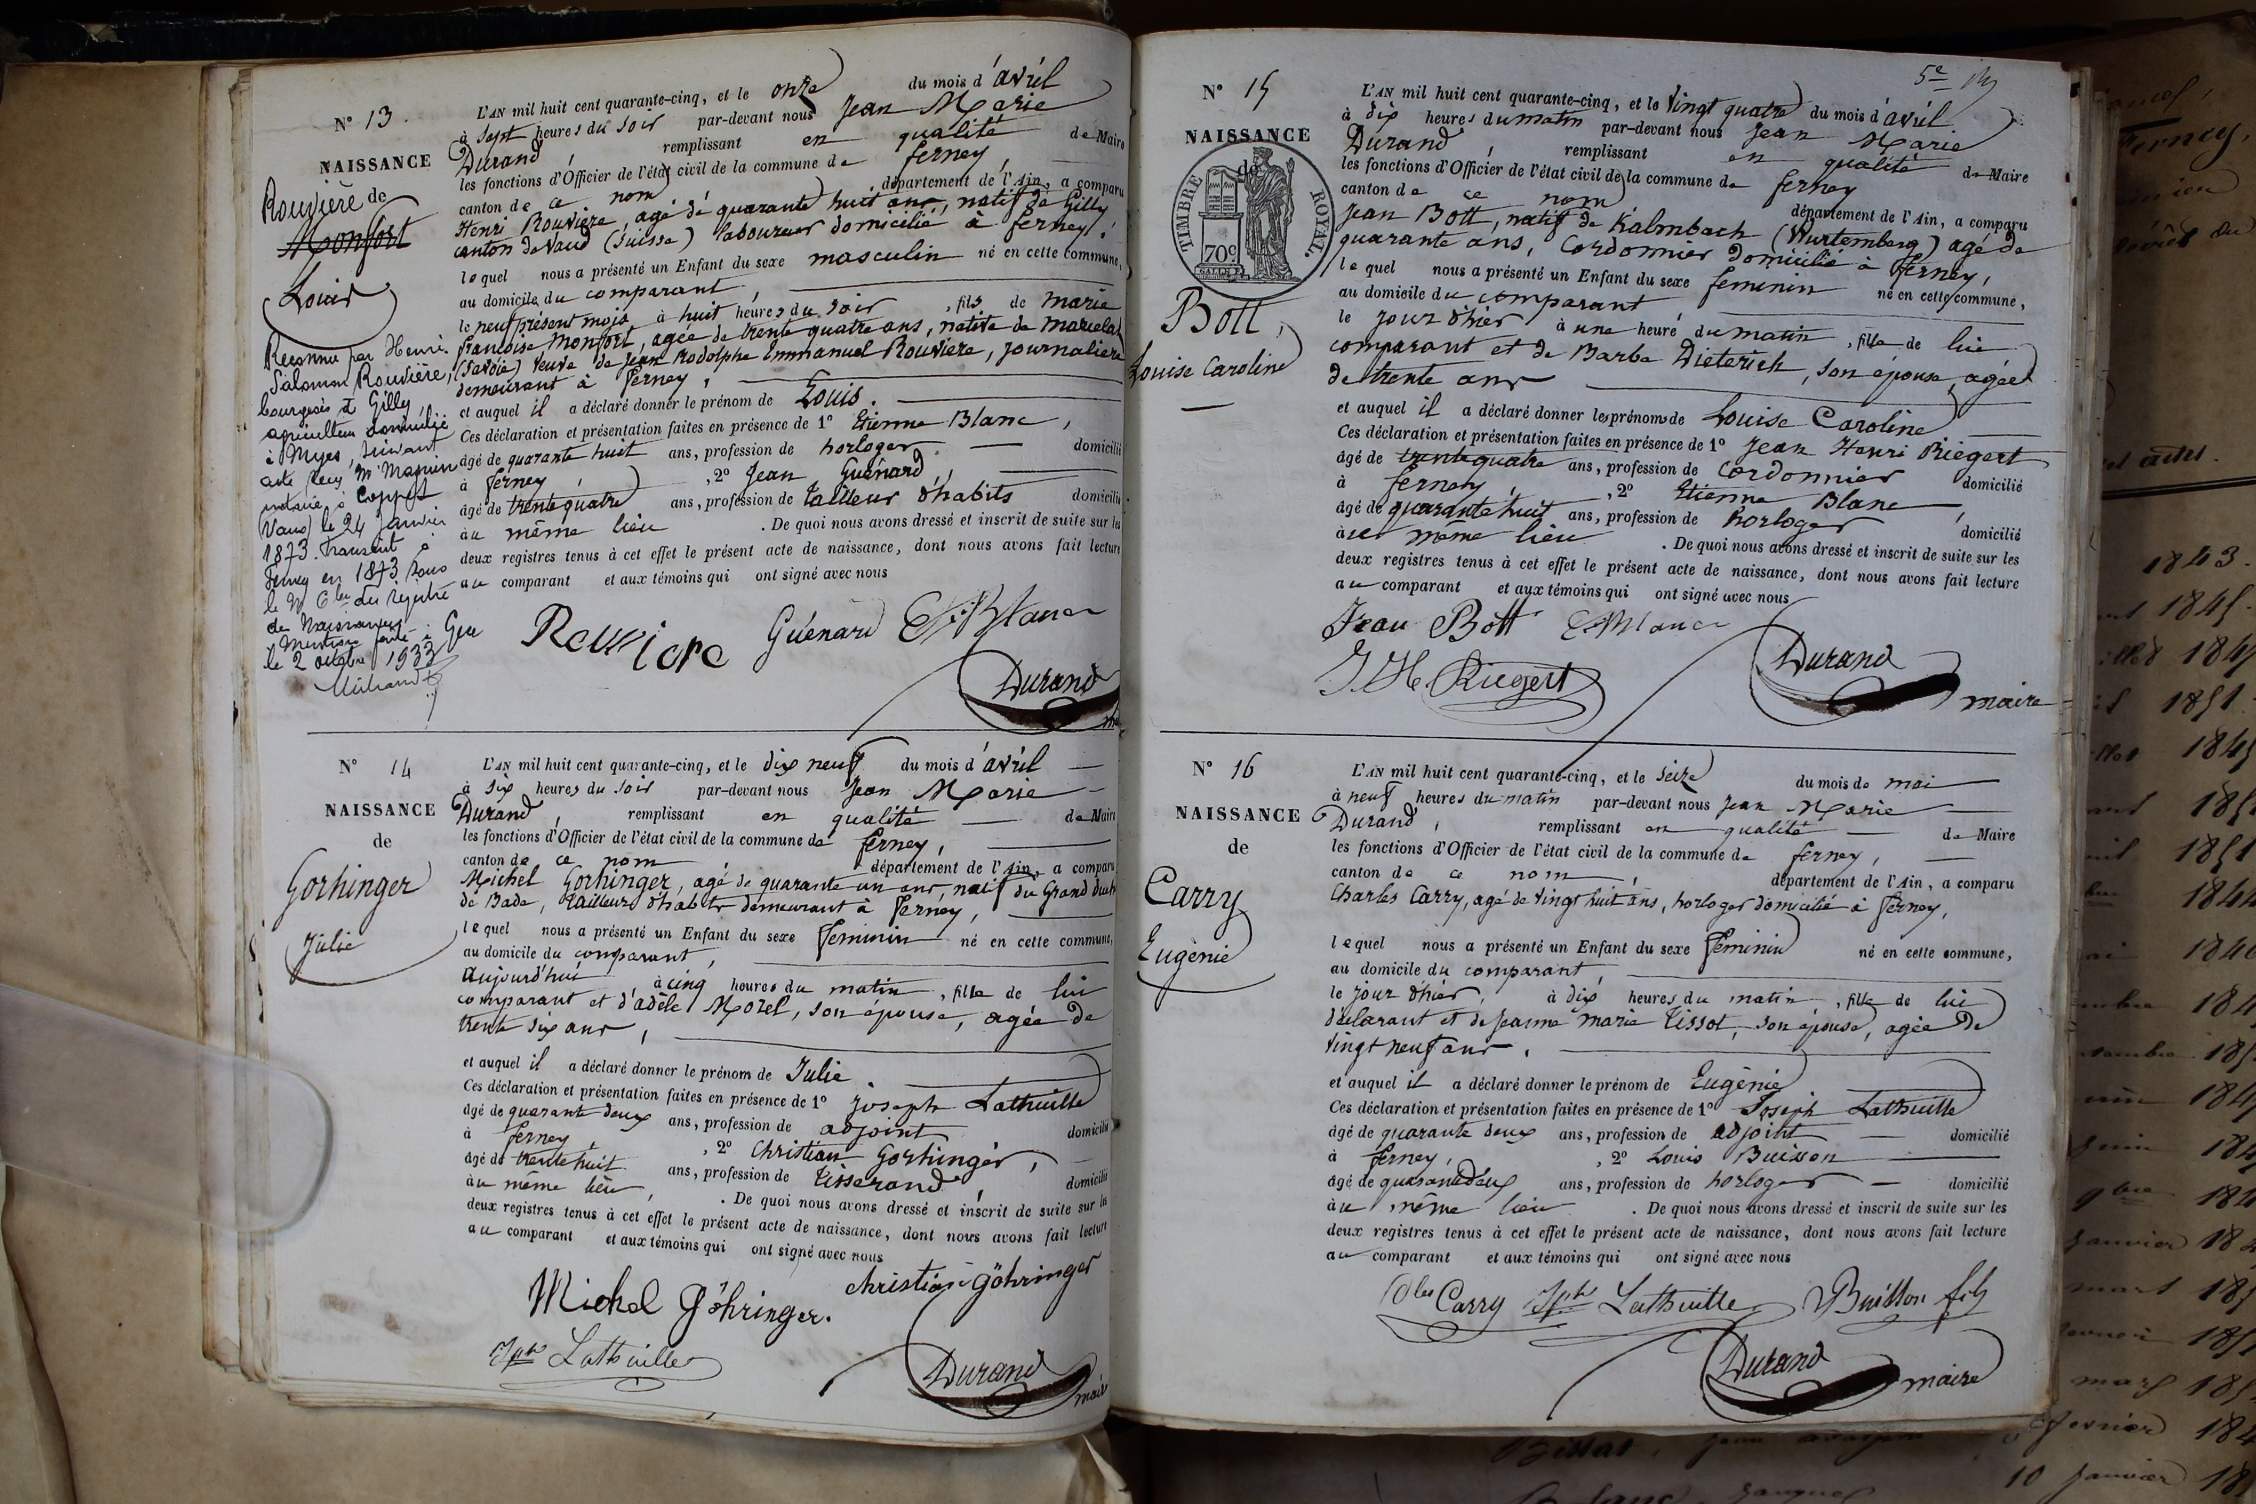 N° 13.
NAISSANCE
de
Rouvière
Monfort
Louis
Reconnu par Henri
Salomon Rouvière,
bourgeois de Gilly,
agriculteur domicilié
à Myes, suivant
acte reçu Me
notaire à Coppet
Vaud) le 24 janvier
1873. Transcrit à
Ferney en 1873 sous
le N° 6 du registre
de Naissances.
Mention faite à Gex
le 2 octobre 1933
L'AN mil huit cent quarante-cinq, et le onze du mois d'avril
à sept heures du soir par-devant nous Jean Marie
Durand, remplissant en qualité de Maire
les fonctions d'Officier de l'état civil de la commune de ferney,
canton de ce nom département de l'Ain, a comparu
Henri Rouvière, agé de quarante huit ans, natif de Gilly
canton de Vaud (Suisse) laboureur domicilié à ferney.
lequel nous a présenté un Enfant du sexe masculin né en cette commune,
au domicile du comparant,
le neuf présent mois à huit heures du soir, fils de marie
françoise Monfort, agée de trente quatre ans, native de
(Savoie) veuve de Jean Rodolphe Emmanuel Rouvière, journalière
demeurant à ferney,
et auquel il a déclaré donner le prénom de Louis.
Ces déclaration et présentation faites en présence de 1° Etienne Blanc,
âgé de quarante huit ans, profession de horloger domicilié
à ferney, 2° Jean Guénard,
âgé de trente quatre ans, profession de tailleur d'habits domicilié
au même lieu. De quoi nous avons dressé et inscrit de suite sur les
deux registres tenus à cet effet le présent acte de naissance, dont nous avons fait lecture
au comparant et aux témoins qui ont signé avec nous
Rouviere Guénard E. Blanc
Durand
N° 14
NAISSANCE
de
Gorhinger
Julie
L'AN mil huit cent quarante-cinq, et le dix neuf du mois d'avril
à six heures du soir par-devant nous Jean Marie
Durand, remplissant en qualité de Maire
les fonctions d'Officier de l'état civil de la commune de ferney,
canton de ce nom département de l'Ain, a comparu
Michel Gorhinger, agé de quarante un ans, natif du Grand Duché
de Bade, tailleur d'habits demeurant à ferney,
lequel nous a présenté un Enfant du sexe feminin né en cette commune,
au domicile du comparant,
aujourd'hui à cinq heures du matin, fille de lui
comparant et d'adèle Morel, son épouse, agée de
trente six ans,
et auquel il a déclaré donner le prénom de Julie.
Ces déclaration et présentation faites en présence de 1° Joseph Lathuille
âgé de quarant deux ans, profession de adjoint domicilié
à ferney, 2° Christian Gorhinger,
âgé de trente huit ans, profession de tisserand domicilié
au même lieu, . De quoi nous avons dressé et inscrit de suite sur les
deux registres tenus à cet effet le présent acte de naissance, dont nous avons fait lecture
au comparant et aux témoins qui ont signé avec nous
Michel Göhringer. christian göhringer
Jph Lathuille
Durand
maire
5e
N° 15
NAISSANCE
de
TIMBRE ROYAL.
70c
Bott,
Louise Caroline
L'AN mil huit cent quarante-cinq, et le vingt quatre du mois d'avril
à dix heures du matin par-devant nous Jean Marie
Durand, remplissant en qualité de Maire
les fonctions d'Officier de l'état civil de la commune de ferney
canton de ce nom département de l'Ain, a comparu
Jean Bott, natif de Kalmbach (Wurtemberg) agé de
quarante ans, Cordonnier domicilié à ferney,
lequel nous a présenté un Enfant du sexe feminin né en cette commune,
au domicile du comparant,
le jour d'hier à une heure du matin, fille de lui
comparant et de Barbe Dieterich, son épouse, agée
de trente ans
et auquel il a déclaré donner les prénoms de Louise Caroline
Ces déclaration et présentation faites en présence de 1° Jean Henri Riegert
âgé de trente quatre ans, profession de Cordonnier domicilié
à ferney, 2° Etienne Blanc,
âgé de quarante huit ans, profession de horloger domicilié
au même lieu. De quoi nous avons dressé et inscrit de suite sur les
deux registres tenus à cet effet le présent acte de naissance, dont nous avons fait lecture
au comparant et aux témoins qui ont signé avec nous
Jean Bott E. Blanc
J. H. Riegert
Durand
maire
N° 16
NAISSANCE
de
Carry
Eugènie
L'AN mil huit cent quarante-cinq, et le seize du mois de mai
à neuf heures du matin par-devant nous Jean Marie
Durand, remplissant en qualité de Maire
les fonctions d'Officier de l'état civil de la commune de ferney,
canton de ce nom, département de l'Ain, a comparu
Charles Carry, agé de vingt huit ans, horloger domicilié à ferney,
lequel nous a présenté un Enfant du sexe feminin né en cette commune,
au domicile du comparant,
le jour d'hier, à dix heures du matin, fille de lui
déclarant et de Jeanne marie Tissot, son épouse, agée de
vingt neuf ans.
et auquel il a déclaré donner le prénom de Eugènie.
Ces déclaration et présentation faites en présence de 1° Joseph Lathuille
âgé de quarante deux ans, profession de adjoint domicilié
à ferney, 2° Louis Buisson
âgé de quarante deux ans, profession de horloger domicilié
au même lieu. De quoi nous avons dressé et inscrit de suite sur les
deux registres tenus à cet effet le présent acte de naissance, dont nous avons fait lecture
au comparant et aux témoins qui ont signé avec nous
Ches Carry Jph Lathuille Buisson fils
Durand
maire
Ferney,
1843.
1845.
1851
janvier
mars
fevrier
10 janvier